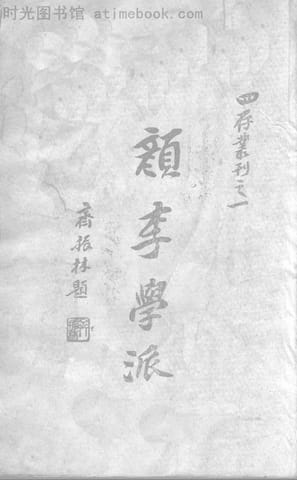 时光图书馆 - www.atimebook.com
四存叢刊之一
顏李學派
齊振林題